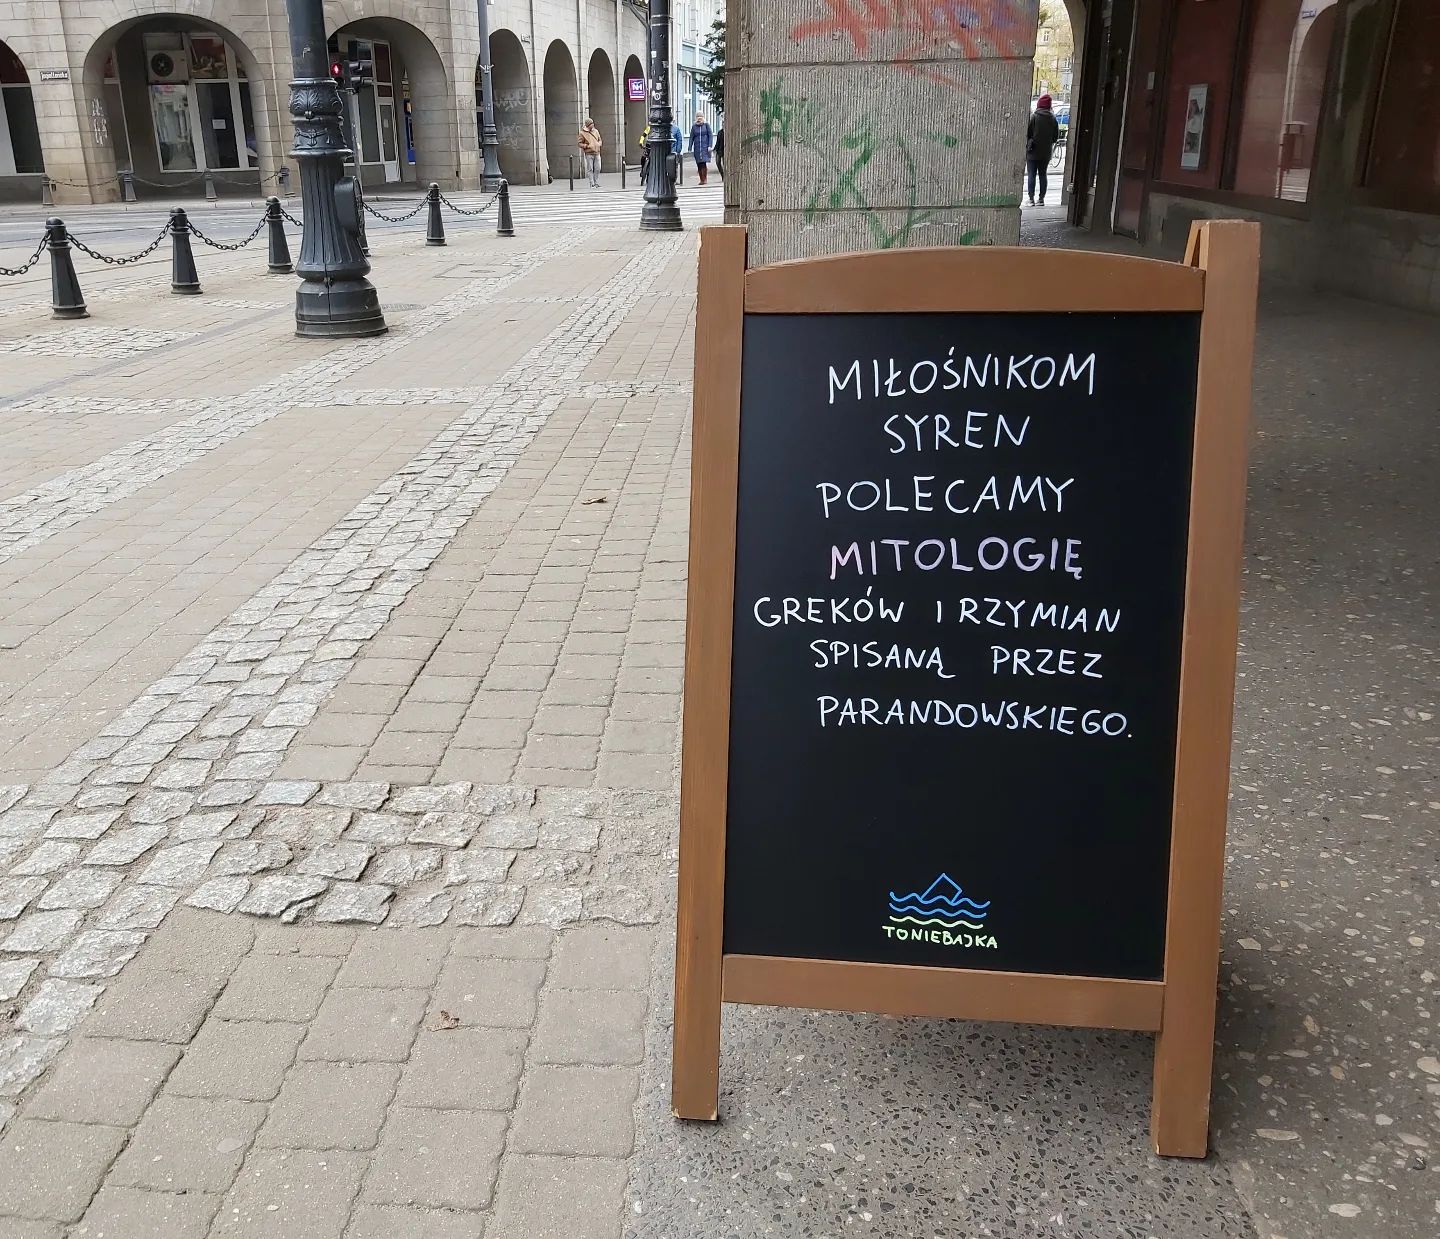 MIŁOŚNIKOM
SYREN
POLECAMY
MITOLOGIĘ
GREKÓW I RZYMIAN
SPISANĄ PRZEZ
PARANDOWSKIEGO.
TONIEBAJKA